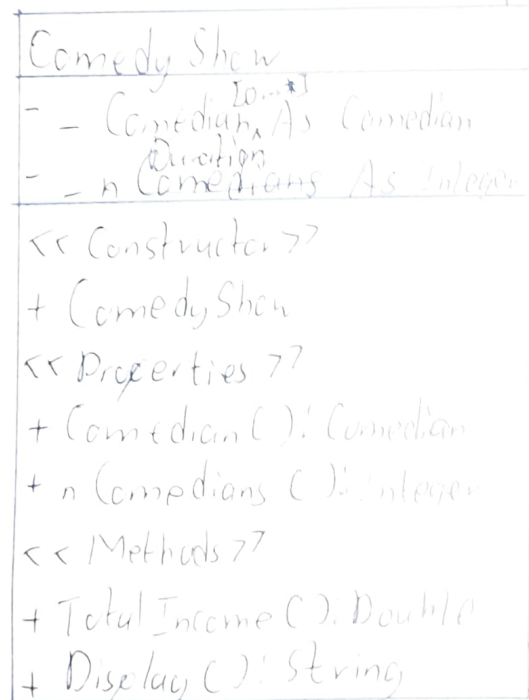 Comedy Show
- _ Comedian[0...*] As Comedian
Duration
- _ nComedians As Integer
<< Constructor >>
+ ComedyShow
<< Properties >>
+ Comedian(): Comedian
+ nComedians(): Integer
<< Methods >>
+ TotalIncome(): Double
+ Display(): String